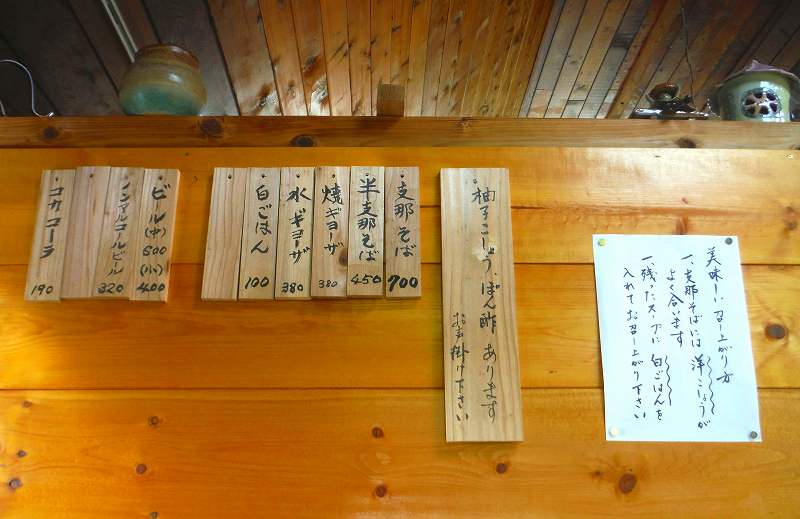 支那そば 700
半支那そば 450
焼ギョーザ 380
水ギョーザ 380
白ごはん 100
ビール(中) 500 (小) 400
ノンアルコールビール 320
コカコーラ 190
柚子こしょう、ぽん酢 あります
お声掛け下さい
美味しい召し上がり方
一、支那そばには 洋こしょうが
よく合います
一、残ったスープに 白ごはんを
入れてお召上がり下さい